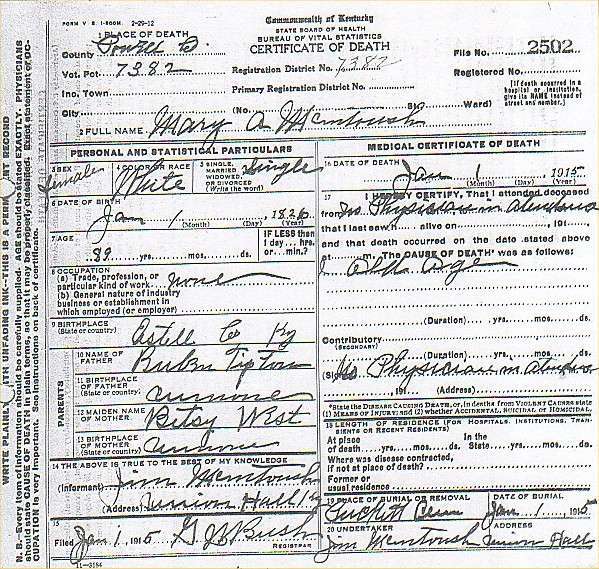 FORM V. S. 1-500M 2-29-12
Commonwealth of Kentucky
STATE BOARD OF HEALTH
BUREAU OF VITAL STATISTICS
CERTIFICATE OF DEATH
1 PLACE OF DEATH
County Powell Co.
File No. 2502
Vot. Pct. 7382
Registration District No. 7382
Registered No.
Inc. Town
Primary Registration District No.
City (No. St. Ward)
[If death occurred in a hospital or institution, give its NAME instead of street and number.]
2 FULL NAME Mary A McIntoush
PERSONAL AND STATISTICAL PARTICULARS
3 SEX Female
4 COLOR OR RACE White
5 SINGLE, MARRIED WIDOWED, OR DIVORCED (Write the word) Single
6 DATE OF BIRTH
Jan 1 1826
(Month) (Day) (Year)
7 AGE
89 yrs. mos. ds.
IF LESS than 1 day ... hrs. or ... min.?
8 OCCUPATION
(a) Trade, profession, or particular kind of work none
(b) General nature of industry business or establishment in which employed (or employer)
9 BIRTHPLACE (State or country) Astell Co Ky
PARENTS
10 NAME OF FATHER Rubin Tipton
11 BIRTHPLACE OF FATHER (State or country)
12 MAIDEN NAME OF MOTHER Betsy West
13 BIRTHPLACE OF MOTHER (State or country)
14 THE ABOVE IS TRUE TO THE BEST OF MY KNOWLEDGE
(Informant) Jim McIntoush
(Address) Union Hall Ky
15
Filed Jan 1, 1915 G J Bush
REGISTRAR
11-3184
MEDICAL CERTIFICATE OF DEATH
16 DATE OF DEATH
Jan 1 1915
(Month) (Day) (Year)
17 I HEREBY CERTIFY, That I attended deceased
from No Physician in
that I last saw h alive on 191
and that death occurred on the date stated above
at m. The CAUSE OF DEATH* was as follows:
Old Age
(Duration) yrs. mos. ds.
Contributory
(SECONDARY)
(Duration) yrs. mos. ds.
(Signed) No Physician in
191 (Address)
*State the DISEASE CAUSING DEATH, or, in deaths from VIOLENT CAUSES state (1) MEANS OF INJURY; and (2) whether ACCIDENTAL, SUICIDAL or HOMICIDAL.
18 LENGTH OF RESIDENCE (FOR HOSPITALS, INSTITUTIONS, TRANSIENTS OR RECENT RESIDENTS)
At place of death yrs. mos. ds. In the State yrs. mos. ds.
Where was disease contracted, if not at place of death?
Former or usual residence
19 PLACE OF BURIAL OR REMOVAL
DATE OF BURIAL
Jan 1, 1915
20 UNDERTAKER
ADDRESS
Jim McIntoush Union Hall
WRITE PLAINLY WITH UNFADING INK—THIS IS A PERMANENT RECORD
N. B.—Every item of information should be carefully supplied. AGE should be stated EXACTLY. PHYSICIANS
should state CAUSE OF DEATH in plain terms, so that it may be properly classified. Exact statement of OC-
CUPATION is very important. See instructions on back of certificate.